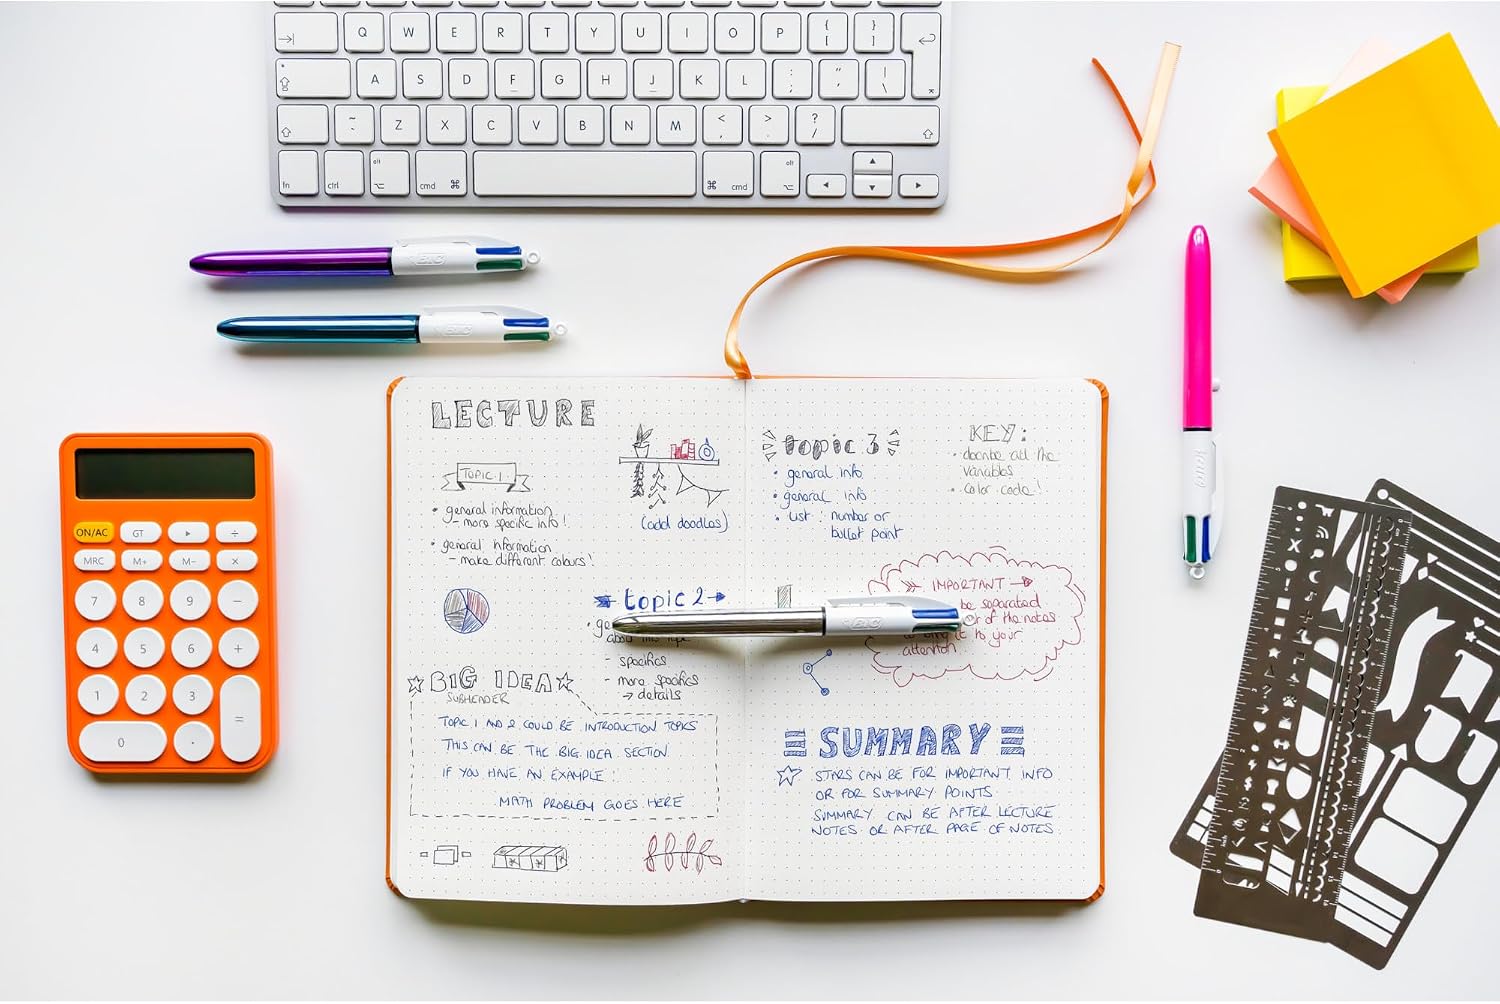 Q W E R T Y U I O P { [ } ]
A S D F G H J K L : ; " ' | \
~ ` Z X C V B N M < , > . ? /
fn ctrl alt cmd cmd alt
BIC
BIC
BIC
BIC
ON/AC GT ▸ ÷
MRC M+ M− ×
7 8 9 −
4 5 6 +
1 2 3 =
0 .
LECTURE
TOPIC 1
• general information
– more specific info!
• general information
– make different colours!
(add doodles)
topic 2
about this topic
- specifics
- more specifics
→ details
BIG IDEA
SUBHEADER
TOPIC 1 AND 2 COULD BE INTRODUCTION TOPICS
THIS CAN BE THE BIG IDEA SECTION
IF YOU HAVE AN EXAMPLE:
MATH PROBLEM GOES HERE
topic 3
• general info
• general info
• list: number or
bullet point
KEY:
• describe all the
variables
• color code!
IMPORTANT
be separated
of the notes
it to your
attention
SUMMARY
STARS CAN BE FOR IMPORTANT INFO
OR FOR SUMMARY POINTS
SUMMARY CAN BE AFTER LECTURE
NOTES OR AFTER PAGE OF NOTES